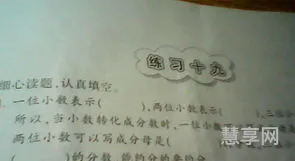 练习十九
细心读题,认真填空。
1. 一位小数表示( ),两位小数表示( ),三位小
所以,当小数转化成分数时,一位小数
两位小数可以写成分母是(
)的分数,能约分的要约分
慧享网